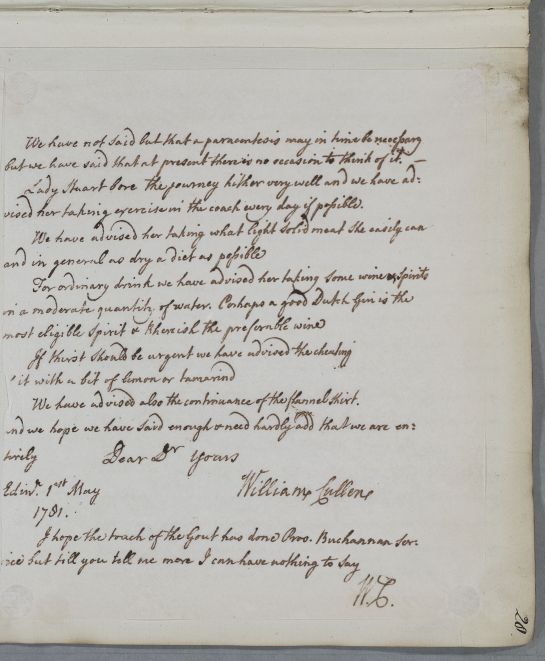 We have not said but that a paracentesis may in time be necessary
but we have said that at present there is no occasion to think of it. —
Lady Stuart bore the journey hither very well and we have ad:
vised her taking exercise in the coach every day if possible.
We have advised her taking what light solid meat she easily can
and in general as dry a diet as possible
For ordinary drink we have advised her taking some wine or spirits
in a moderate quantity of water. Perhaps a good Dutch Gin is the
most eligible spirit & Rhenish the preferable wine
If thirst should be urgent we have advised the cheating
it with a bit of lemon or tamarind
We have advised also the continuance of the flannel shirt.
And we hope we have said enough & need hardly add that we are en:
tirely Dear Dr Yours
Edinr. 1st May William Cullen
1781.
I hope the touch of the Gout has done Pros. Buchannan ser:
vice but till you tell me more I can have nothing to say
W.C.
20